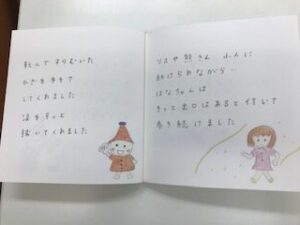 転んですりむいた
ひざを手当て
してくれました
涙をそっと
拭いてくれました
リスや熊さん 小人に
助けられながら‥
はなちゃんは
きっと出口はあると信じて
歩き続けました